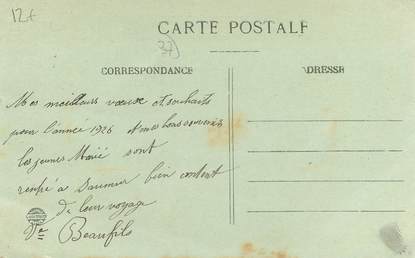 12+
CARTE POSTALE
37
CORRESPONDANCE
ADRESSE
Mes meilleurs vœux et souhaits
pour l'année 1926 et mes bons souvenirs
les jeunes Marié sont
rentré a Saumur bien content
de leur voyage
Ve Beaufils